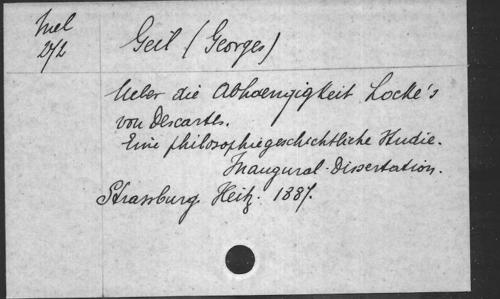 Mel
272
Geil (Georges)
Ueber die Abhaengigkeit Locke's
von Descartes.
Eine philosophiegeschichtliche Studie.
Inaugural-Dissertation.
Strassburg. Heitz. 1887.